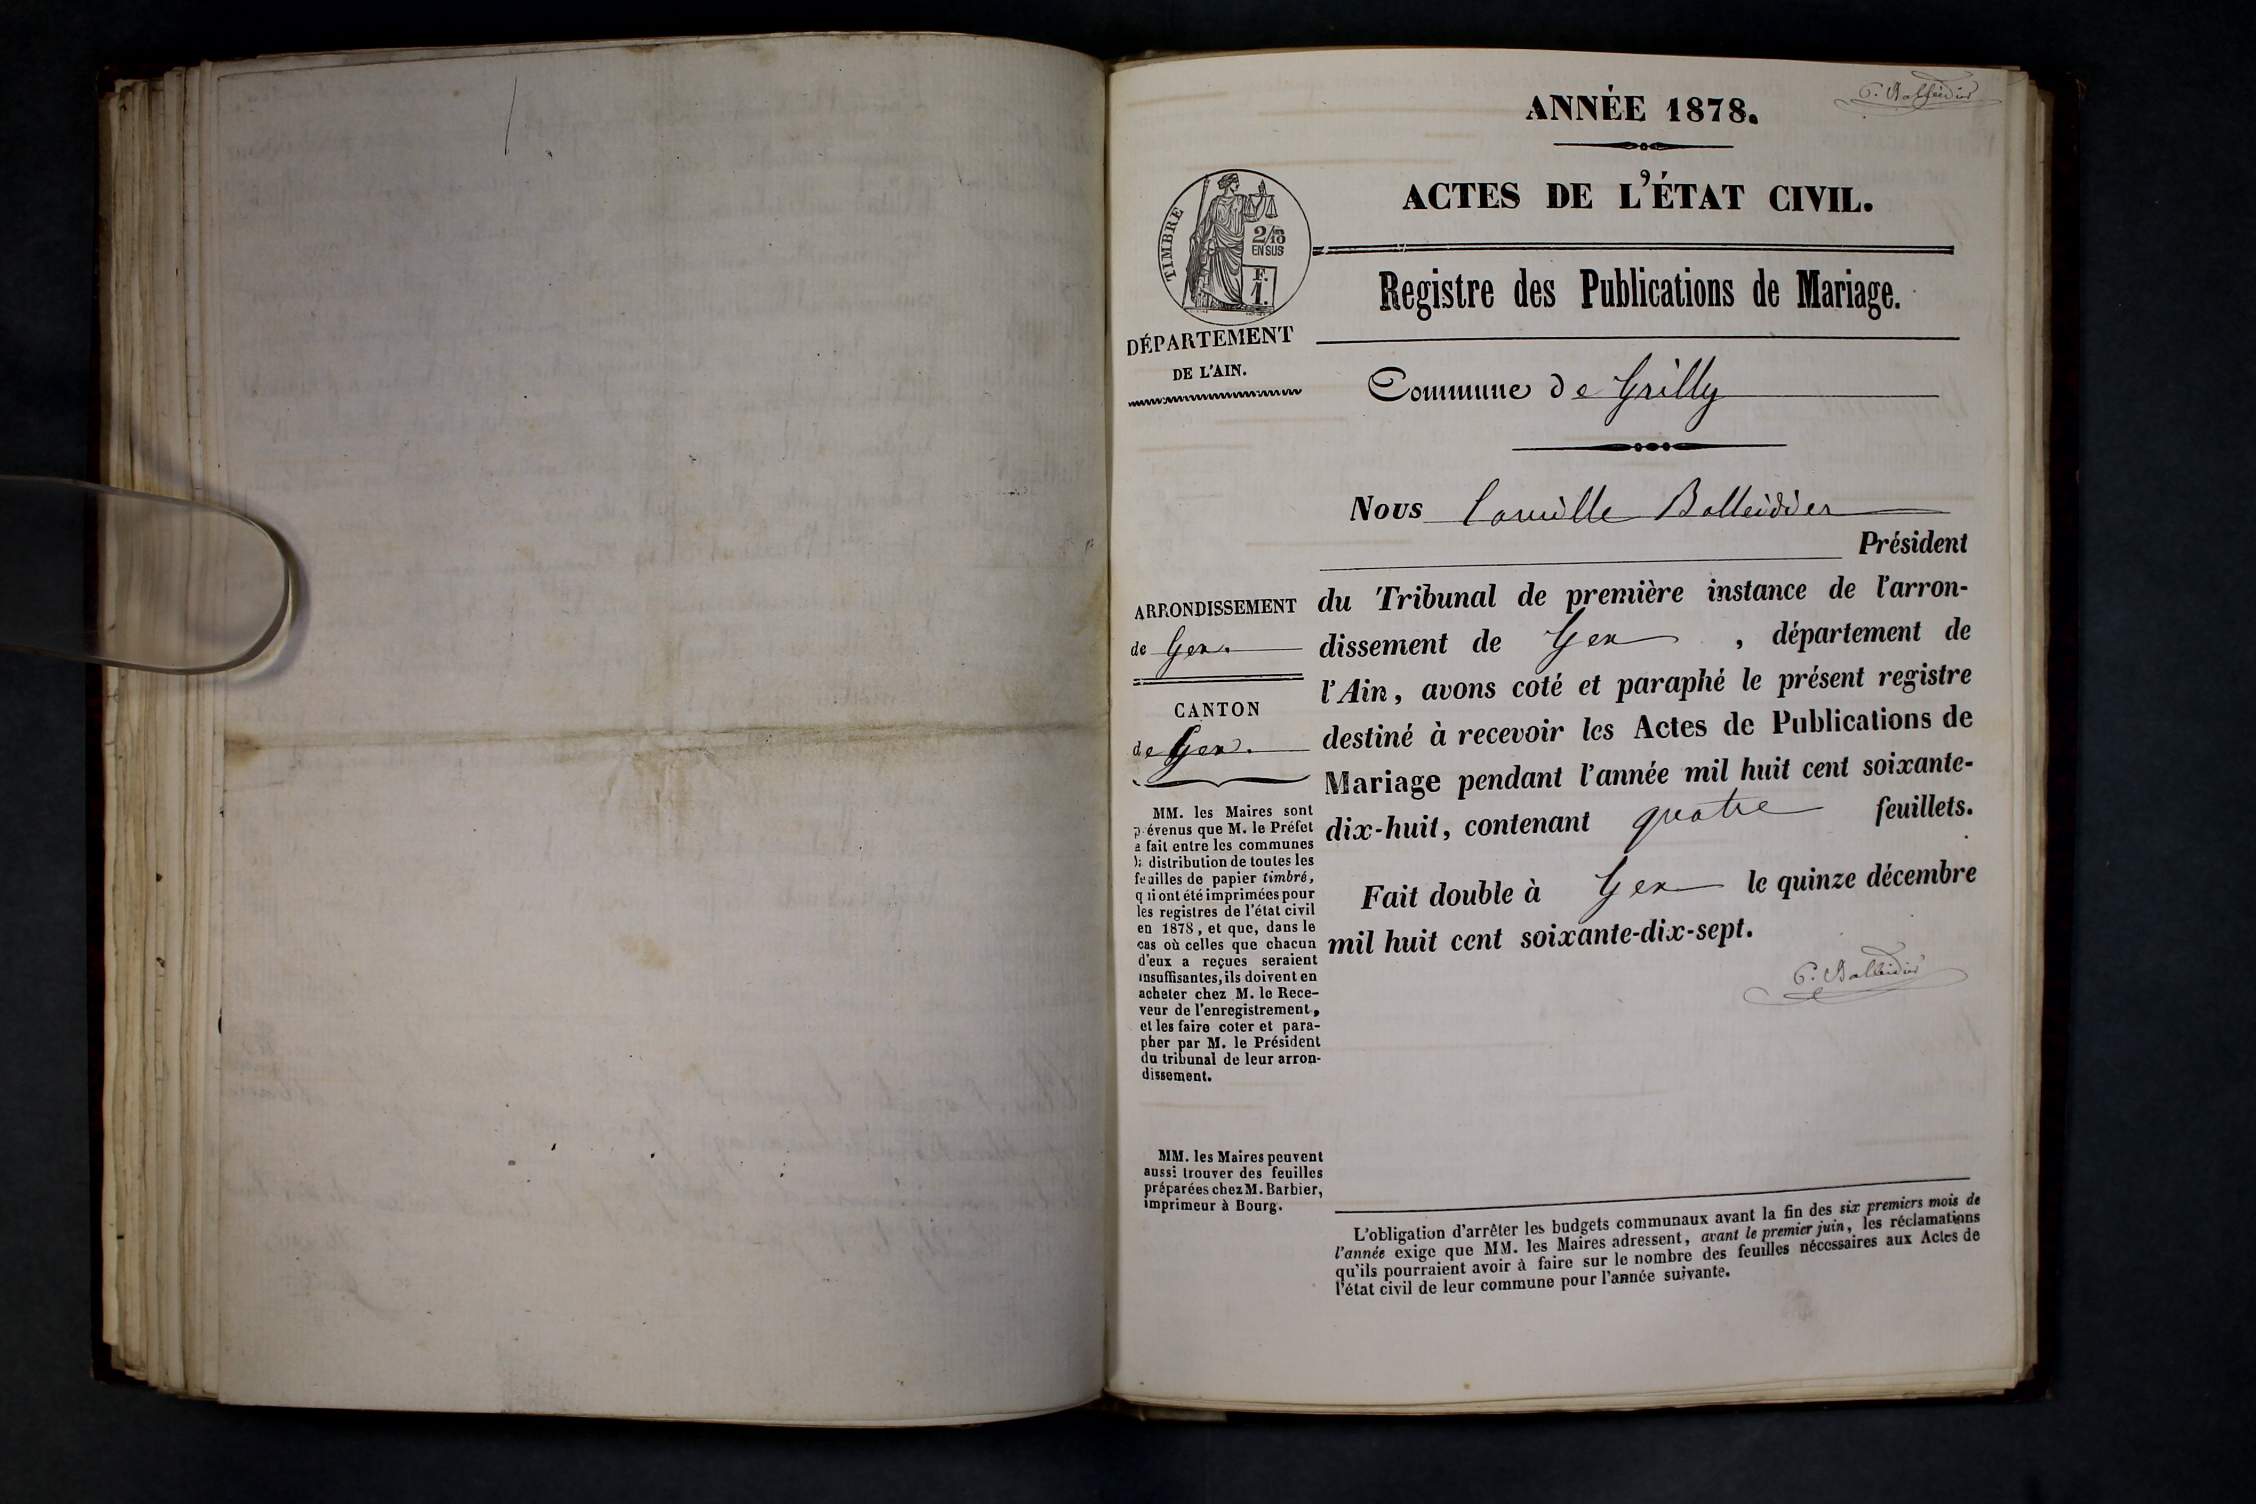 C. Balleidier
ANNÉE 1878.
ACTES DE L'ÉTAT CIVIL.
TIMBRE
2/10
EN SUS
F.
1.
Registre des Publications de Mariage.
DÉPARTEMENT
DE L'AIN.
Commune de Grilly
Nous Camille Balleidier
Président
du Tribunal de première instance de l'arron-
dissement de Gex, département de
l'Ain, avons coté et paraphé le présent registre
destiné à recevoir les Actes de Publications de
Mariage pendant l'année mil huit cent soixante-
dix-huit, contenant quatre feuillets.
Fait double à Gex le quinze décembre
mil huit cent soixante-dix-sept.
C. Balleidier
ARRONDISSEMENT
de Gex.
CANTON
de Gex.
MM. les Maires sont
prévenus que M. le Préfet
a fait entre les communes
la distribution de toutes les
feuilles de papier timbré,
qui ont été imprimées pour
les registres de l'état civil
en 1878, et que, dans le
cas où celles que chacun
d'eux a reçues seraient
insuffisantes, ils doivent en
acheter chez M. le Rece-
veur de l'enregistrement,
et les faire coter et para-
pher par M. le Président
du tribunal de leur arron-
dissement.
MM. les Maires peuvent
aussi trouver des feuilles
préparées chez M. Barbier,
imprimeur à Bourg.
L'obligation d'arrêter les budgets communaux avant la fin des six premiers mois de
l'année exige que MM. les Maires adressent, avant le premier juin, les réclamations
qu'ils pourraient avoir à faire sur le nombre des feuilles nécessaires aux Actes de
l'état civil de leur commune pour l'année suivante.